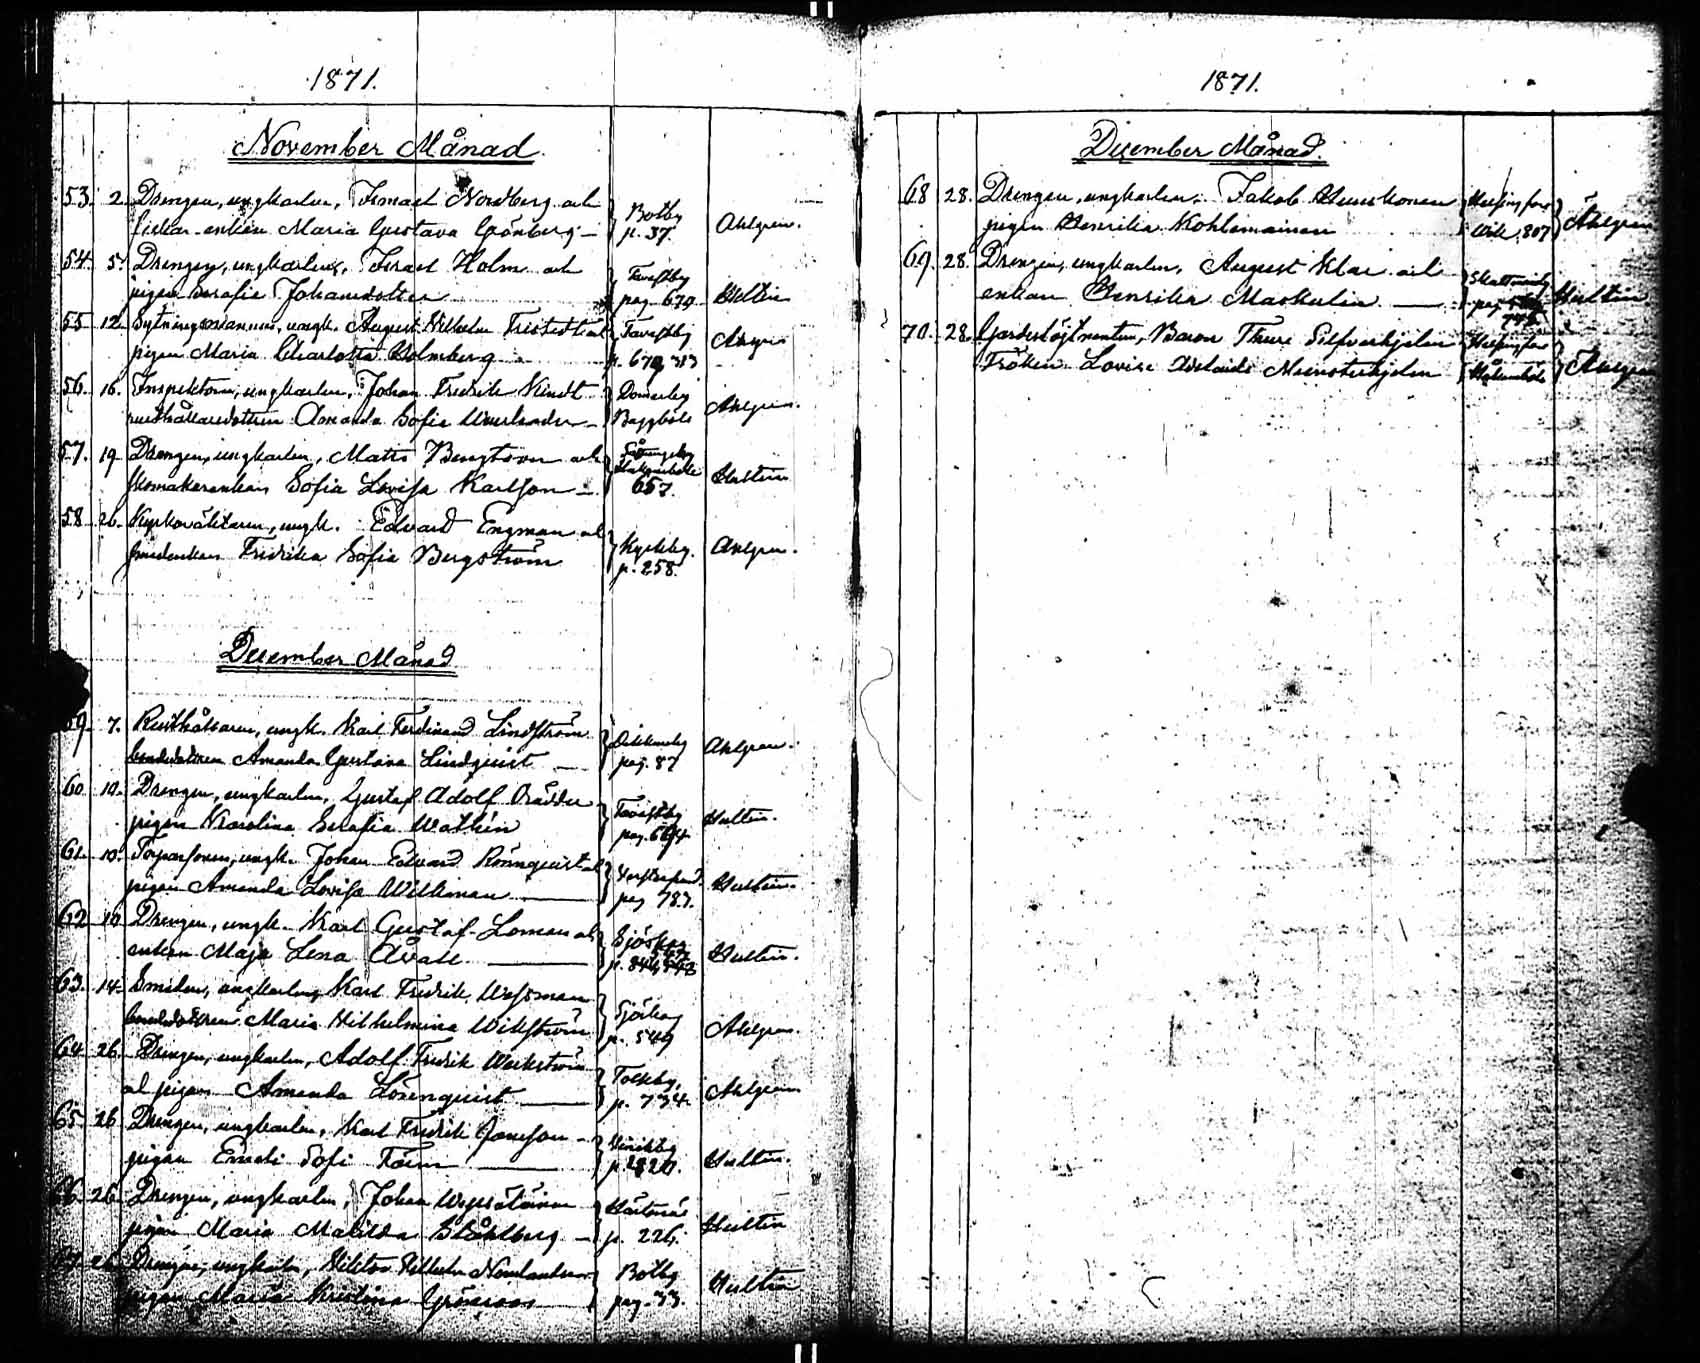 1871.
November Månad.
53. 2. Drengen, ungkarlen, Ismael Nordberg och
fiskar-enkan Maria Gustava Grönberg — Botby p. 37. Ahlgren.
54. 5. Drengen, ungkarlen, Israel Holm och
pigan Serafia Johansdotter Tavastby pag. 679. Hultin
55 12. Sytningsmannen, ungk. August Wilhelm Tristedt och
pigan Maria Charlotta Holmberg Tavastby p. 679, 313 Ahlgren
56. 16. Inspektoren, ungkarlen, Johan Fredrik Kindt
rusthållaredottren Amanda Sofia — Domarby Baggböle Ahlgren.
57. 19 Drengen, ungkarlen, Matts Bengtson och
skomakarenkan Sofia Lovisa Karlson — 657. Hultin
58 26. Kyrkovaktaren, ungk. Edvard Engman och
smedenkan Fredrika Sofia Bergström Kyrkby. p. 258. Ahlgren.
December Månad
59. 7. Rusthållaren, ungk. Karl Ferdinand Lindström
bondedottren Amanda Gustava Lindquist — Dickursby pag. 87 Ahlgren.
60. 10. Drengen, ungkarlen, Gustaf Adolf
pigan Karolina Serafia Wathén Tavastby pag. 694 Hultin.
61. 10. Torparsonen, ungk. Johan Edvard Rönnquist och
pigan Amanda Lovisa Williman — pag 783. Hultin.
62 10 Drengen, ungk. Karl Gustaf Loman och
enkan Maja Lena — Sjöskog Hultin.
63. 14. Smeden, ungkarlen, Karl Fredrik Wessman
bondedottren Maria Wilhelmina Wikström Sjöskog p. 549 Ahlgren.
64 26. Drengen, ungkarlen, Adolf Fredrik Weckström
och pigan Amanda Lönnquist — Tolkby. p. 734 Ahlgren
65 26 Drengen, ungkarlen, Karl Fredrik Jansson —
pigan Emeli Sofi — Hultin.
66. 26. Drengen, ungkarlen, Johan
pigan Maria Matilda Ståhlberg — p. 226. Hultin
67. 26 Drengen, ungkarlen, Viktor Vilhelm
pigan Maria Kristina Grönroos — Botby pag. 33. Hultin
1871.
December Månad.
68 28. Drengen, ungkarlen, Jakob Helsingfors Ahlgren
pigan Henrika Kohlemainen Wik. 807
69. 28. Drengen, ungkarlen, August Klar och
enkan Henrika — Hultin
70. 28. Gardeslöjtnanten, Baron Thure Silfverhjelm Helsingfors
Fröken Lovise Adelaide Munsterhjelm Håkansböle Ahlgren